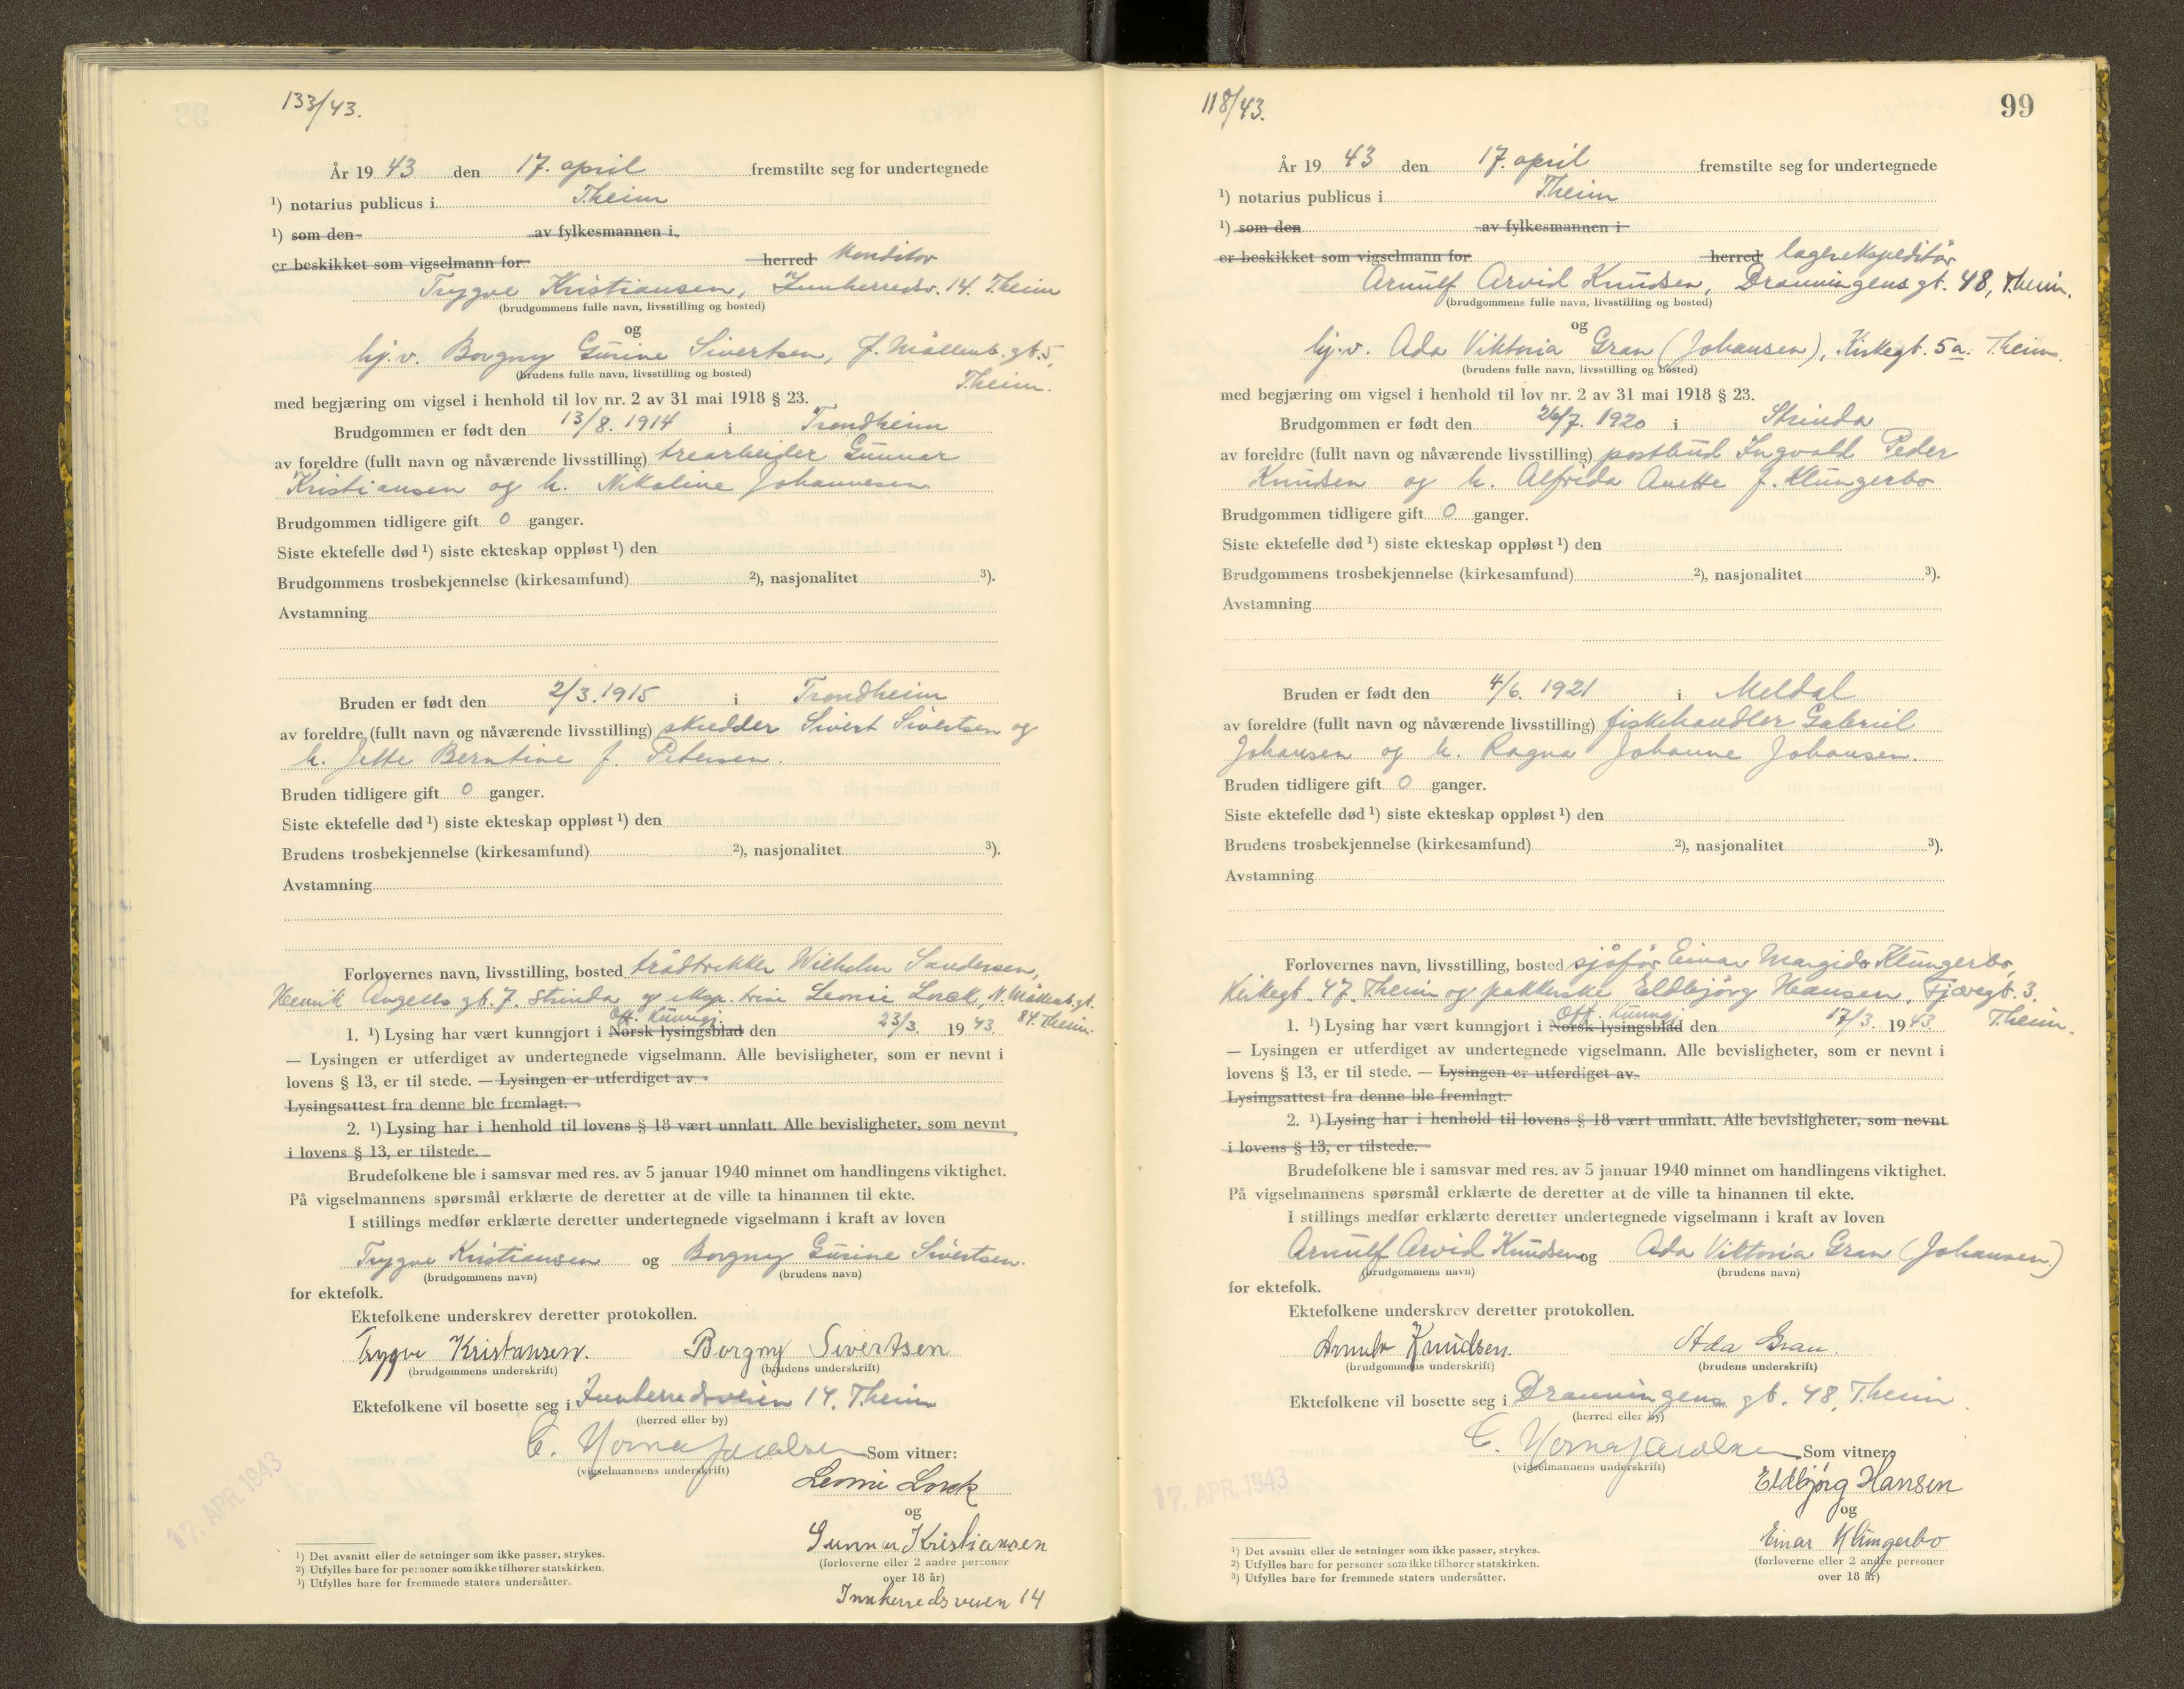 133/43.
År 19 43 den 17. april fremstilte seg for undertegnede
1) notarius publicus i Theim
1) som den av fylkesmannen i
er beskikket som vigselmann for herred konditor
Trygve Kristiansen, Innherredsv. 14. Theim
(brudgommens fulle navn, livsstilling og bosted)
og
hj.v. Borgny Gurine Sivertsen, f. Møllenb. gt. 5,
(brudens fulle navn, livsstilling og bosted) Theim.
med begjæring om vigsel i henhold til lov nr. 2 av 31 mai 1918 § 23.
Brudgommen er født den 13/8. 1914 i Trondheim
av foreldre (fullt navn og nåværende livsstilling) trearbeider Gunnar
Kristiansen og h. Nikoline Johannesen.
Brudgommen tidligere gift 0 ganger.
Siste ektefelle død 1) siste ekteskap oppløst 1) den
Brudgommens trosbekjennelse (kirkesamfund) 2), nasjonalitet 3).
Avstamning
Bruden er født den 2/3. 1915 i Trondheim
av foreldre (fullt navn og nåværende livsstilling) skredder Sivert Sivertsen og
h. Jette Berntine f. Petersen.
Bruden tidligere gift 0 ganger.
Siste ektefelle død 1) siste ekteskap oppløst 1) den
Brudens trosbekjennelse (kirkesamfund) 2), nasjonalitet 3).
Avstamning
Forlovernes navn, livsstilling, bosted trådtrekker Wilhelm Sandersen,
Henrik Angells gt. 7. Strinda og eksp. trise Leonie Lorck, N. Møllenb. gt.
84. Theim.
Off. Kunngj.
1. 1) Lysing har vært kunngjort i Norsk lysingsblad den 23/3. 19 43.
— Lysingen er utferdiget av undertegnede vigselmann. Alle bevisligheter, som er nevnt i
lovens § 13, er til stede. — Lysingen er utferdiget av
Lysingsattest fra denne ble fremlagt.
2. 1) Lysing har i henhold til lovens § 18 vært unnlatt. Alle bevisligheter, som nevnt
i lovens § 13, er tilstede.
Brudefolkene ble i samsvar med res. av 5 januar 1940 minnet om handlingens viktighet.
På vigselmannens spørsmål erklærte de deretter at de ville ta hinannen til ekte.
I stillings medfør erklærte deretter undertegnede vigselmann i kraft av loven
Trygve Kristiansen og Borgny Gurine Sivertsen.
(brudgommens navn) (brudens navn)
for ektefolk.
Ektefolkene underskrev deretter protokollen.
Trygve Kristiansen. Borgny Sivertsen
(brudgommens underskrift) (brudens underskrift)
Ektefolkene vil bosette seg i Innherredsveien 14. Theim
(herred eller by)
Som vitner:
(vigselmannens underskrift)
Leonie Lorck
17. APR. 1943
og
Gunnar Kristiansen
(forloverne eller 2 andre personer
over 18 år)
Innherredsveien 14
1) Det avsnitt eller de setninger som ikke passer, strykes.
2) Utfylles bare for personer som ikke tilhører statskirken.
3) Utfylles bare for fremmede staters undersåtter.
118/43.
99
År 19 43 den 17. april fremstilte seg for undertegnede
1) notarius publicus i Theim
1) som den av fylkesmannen i
er beskikket som vigselmann for herred lagerekspeditør
Arnulf Arvid Knudsen, Dronningens gt. 48, Theim.
(brudgommens fulle navn, livsstilling og bosted)
og
hj.v. Ada Viktoria Gran (Johansen), Kirkegt. 5a. Theim.
(brudens fulle navn, livsstilling og bosted)
med begjæring om vigsel i henhold til lov nr. 2 av 31 mai 1918 § 23.
Brudgommen er født den 26/7. 1920 i Strinda
av foreldre (fullt navn og nåværende livsstilling) postbud Ingvald Peder
Knudsen og h. Alfrida Anette f. Klungerbo
Brudgommen tidligere gift 0 ganger.
Siste ektefelle død 1) siste ekteskap oppløst 1) den
Brudgommens trosbekjennelse (kirkesamfund) 2), nasjonalitet 3).
Avstamning
Bruden er født den 4/6. 1921 i Meldal
av foreldre (fullt navn og nåværende livsstilling) fiskehandler Gabriel
Johansen og h. Ragna Johanne Johansen.
Bruden tidligere gift 0 ganger.
Siste ektefelle død 1) siste ekteskap oppløst 1) den
Brudens trosbekjennelse (kirkesamfund) 2), nasjonalitet 3).
Avstamning
Forlovernes navn, livsstilling, bosted sjåfør Einar Margido Klungerbo,
Kirkegt. 47. Theim og pakkerske Eldbjørg Hansen, Fjæregt. 3.
Theim.
Off. Kunngj.
1. 1) Lysing har vært kunngjort i Norsk lysingsblad den 17/3. 19 43.
— Lysingen er utferdiget av undertegnede vigselmann. Alle bevisligheter, som er nevnt i
lovens § 13, er til stede. — Lysingen er utferdiget av
Lysingsattest fra denne ble fremlagt.
2. 1) Lysing har i henhold til lovens § 18 vært unnlatt. Alle bevisligheter, som nevnt
i lovens § 13, er tilstede.
Brudefolkene ble i samsvar med res. av 5 januar 1940 minnet om handlingens viktighet.
På vigselmannens spørsmål erklærte de deretter at de ville ta hinannen til ekte.
I stillings medfør erklærte deretter undertegnede vigselmann i kraft av loven
Arnulf Arvid Knudsen og Ada Viktoria Gran (Johansen)
(brudgommens navn) (brudens navn)
for ektefolk.
Ektefolkene underskrev deretter protokollen.
Arnulf Knudsen. Ada Gran.
(brudgommens underskrift) (brudens underskrift)
Ektefolkene vil bosette seg i Dronningens gt. 48, Theim.
(herred eller by)
Som vitner:
(vigselmannens underskrift)
Eldbjørg Hansen
17. APR. 1943
og
Einar Klungerbo
(forloverne eller 2 andre personer
over 18 år)
1) Det avsnitt eller de setninger som ikke passer, strykes.
2) Utfylles bare for personer som ikke tilhører statskirken.
3) Utfylles bare for fremmede staters undersåtter.